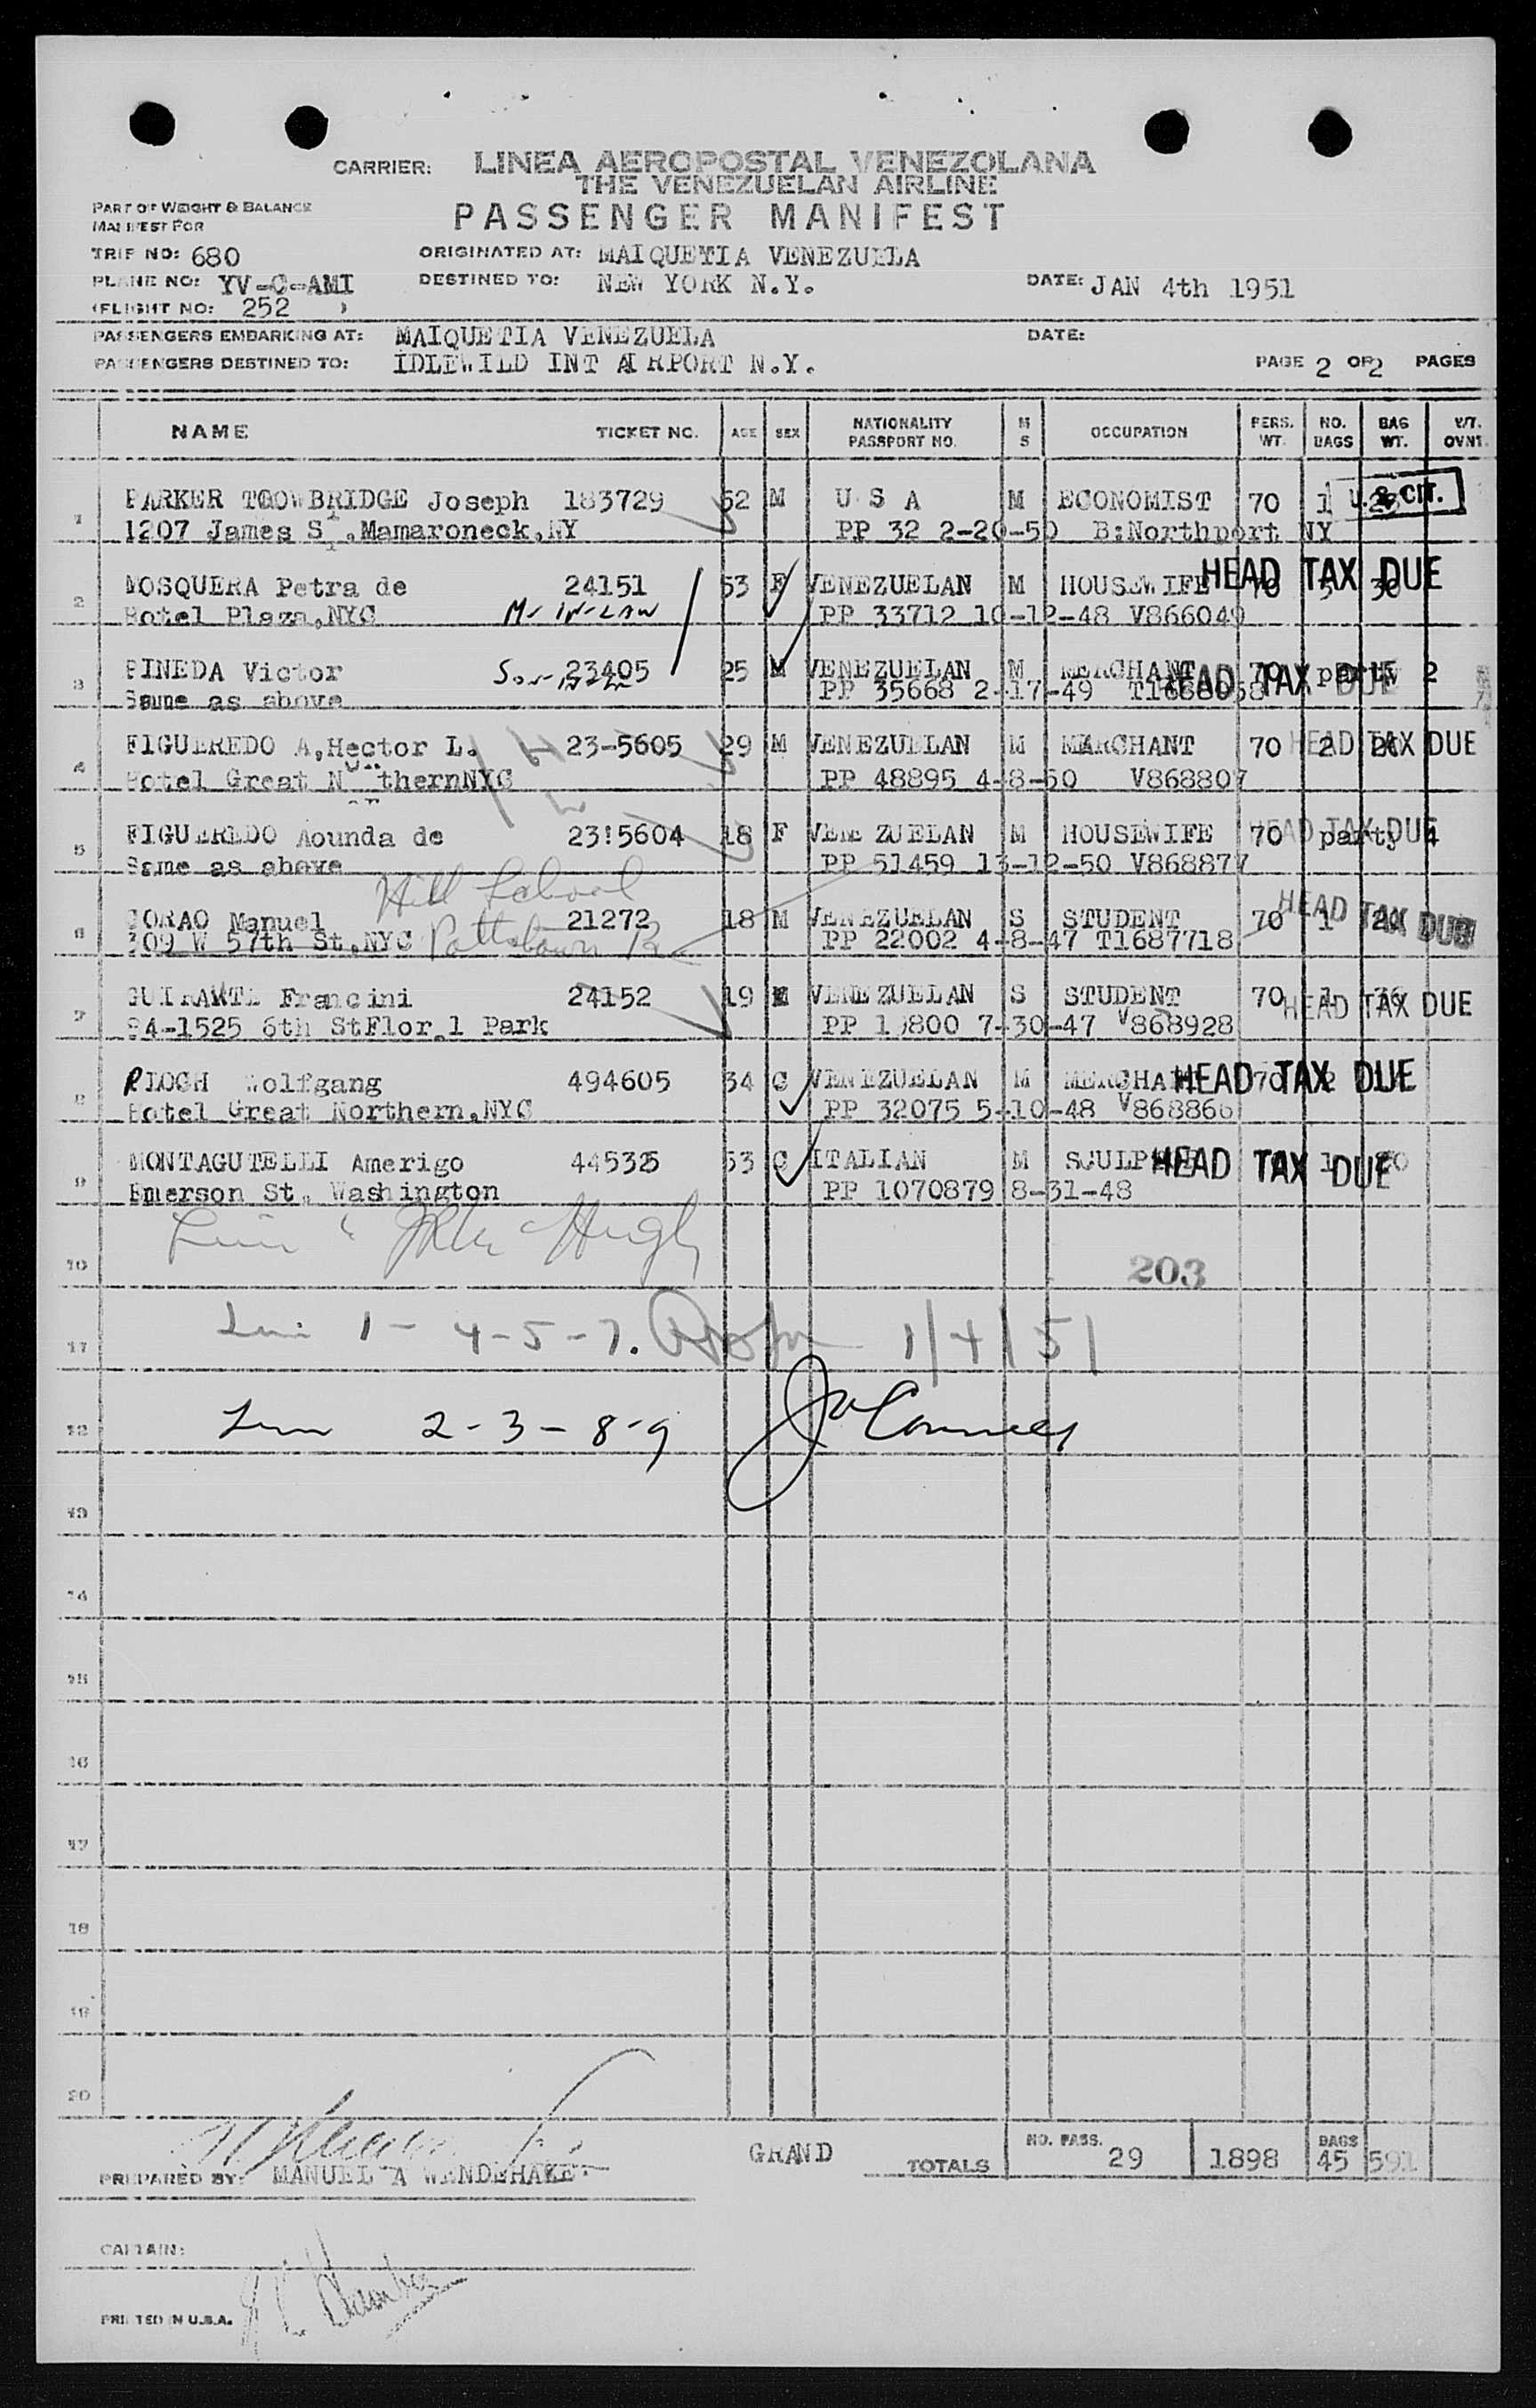 CARRIER: LINEA AEROPOSTAL VENEZOLANA
THE VENEZUELAN AIRLINE
PART OF WEIGHT & BALANCE
MANIFEST FOR
PASSENGER MANIFEST
TRIP NO: 680 ORIGINATED AT: MAIQUETIA VENEZUELA
PLANE NO: YV-C-AMI DESTINED TO: NEW YORK N.Y. DATE: JAN 4th 1951
(FLIGHT NO: 252 )
PASSENGERS EMBARKING AT: MAIQUETIA VENEZUELA DATE:
PASSENGERS DESTINED TO: IDLEWILD INT AIRPORT N.Y. PAGE 2 OF 2 PAGES
NAME TICKET NO. AGE SEX NATIONALITY PASSPORT NO. M S OCCUPATION PERS. WT. NO. BAGS BAG WT. WT. OVNT.
1 PARKER TROWBRIDGE Joseph 183729 52 M U S A M ECONOMIST 70 1 U.S. CIT.
1207 James St.Mamaroneck,NY PP 32 2-20-50 B:Northport NY
2 MOSQUERA Petra de 24151 53 F VENEZUELAN M HOUSEWIFE 70 3 30 HEAD TAX DUE
Hotel Plaza,NYC M-IN-LAW PP 33712 10-12-48 V866049
3 PINEDA Victor Son-in-law 23405 25 M VENEZUELAN M MERCHANT 70 party 2 HEAD TAX DUE
Same as above PP 35668 2-17-49 T1688058
4 FIGUEREDO A,Hector L. 23-5605 29 M VENEZUELAN M MERCHANT 70 2 20 HEAD TAX DUE
Hotel Great NorthernNYC PP 48895 4-8-50 V868807
5 FIGUEREDO Aounda de 23!5604 18 F VENEZUELAN M HOUSEWIFE 70 party 4 HEAD TAX DUE
Same as above PP 51459 13-12-50 V868877
Hill School
6 CORAO Manuel 21272 18 M VENEZUELAN S STUDENT 70 1 20 HEAD TAX DUE
309 W 57th St,NYC Pottstown Pa PP 22002 4-8-47 T1687718
7 Francini 24152 19 M VENEZUELAN S STUDENT 70 1 HEAD TAX DUE
84-1525 6th StFlor.l Park PP 7-30-47 V868928
8 Wolfgang 494605 34 C VENEZUELAN M MERCHANT 70 2 HEAD TAX DUE
Hotel Great Northern,NYC PP 32075 5-10-48 V868866
9 MONTAGUTELLI Amerigo 44532 53 C ITALIAN M HEAD TAX DUE
Emerson St. Washington PP 1070879 8-31-48
10 203
11 1 - 4-5-7. 1/4/51
12 2-3-8-9
13
14
15
16
17
18
19
20
GRAND TOTALS NO. PASS. 29 1898 BAGS 45 591
PREPARED BY: MANUEL A WENDEHAKE
CAPTAIN:
PRINTED IN U.S.A.